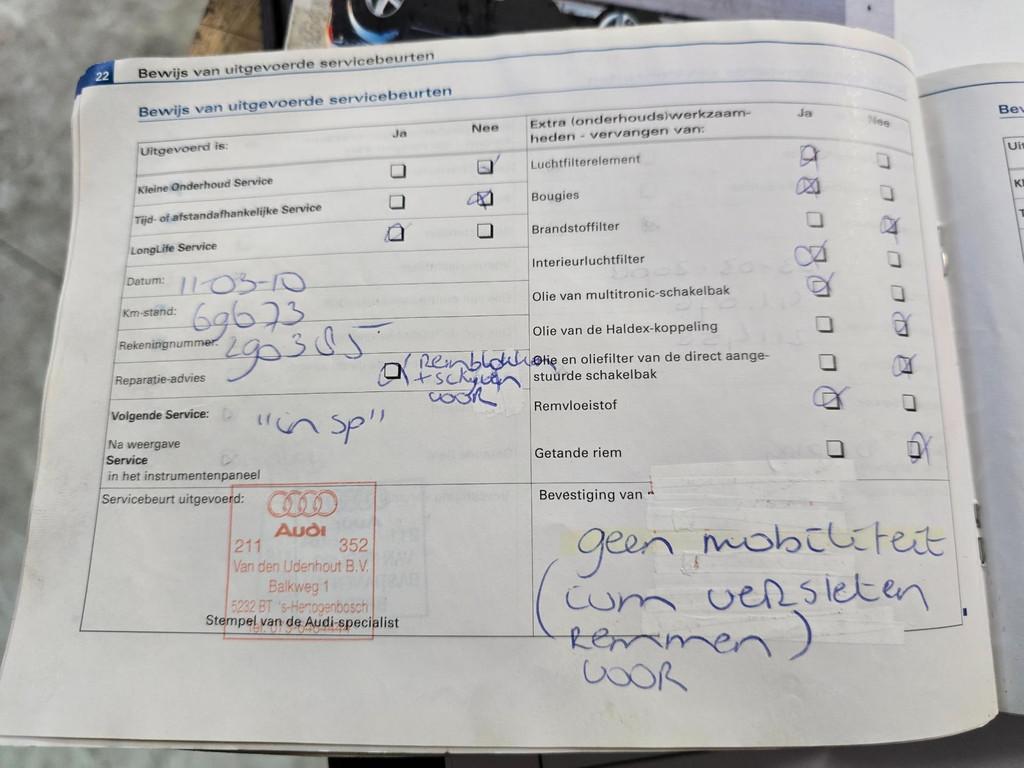 22
Bewijs van uitgevoerde servicebeurten
Bewijs van uitgevoerde servicebeurten
Uitgevoerd is: Ja Nee
Kleine Onderhoud Service
Tijd- of afstandafhankelijke Service
LongLife Service
Datum: 11-03-10
Km-stand: 69673
Rekeningnummer:
Reparatie-advies Remblokken
+ schijven
voor
Volgende Service: "in sp"
Na weergave
Service
in het instrumentenpaneel
Servicebeurt uitgevoerd:
Audi
211 352
Van den Udenhout B.V.
Balkweg 1
5232 BT 's-Hertogenbosch
Stempel van de Audi-specialist
Extra (onderhouds)werkzaam-
heden - vervangen van: Ja Nee
Luchtfilterelement
Bougies
Brandstoffilter
Interieurluchtfilter
Olie van multitronic-schakelbak
Olie van de Haldex-koppeling
Olie en oliefilter van de direct aange-
stuurde schakelbak
Remvloeistof
Getande riem
Bevestiging van
geen mobiliteit
(ivm versleten
remmen)
voor
Bev
Uit